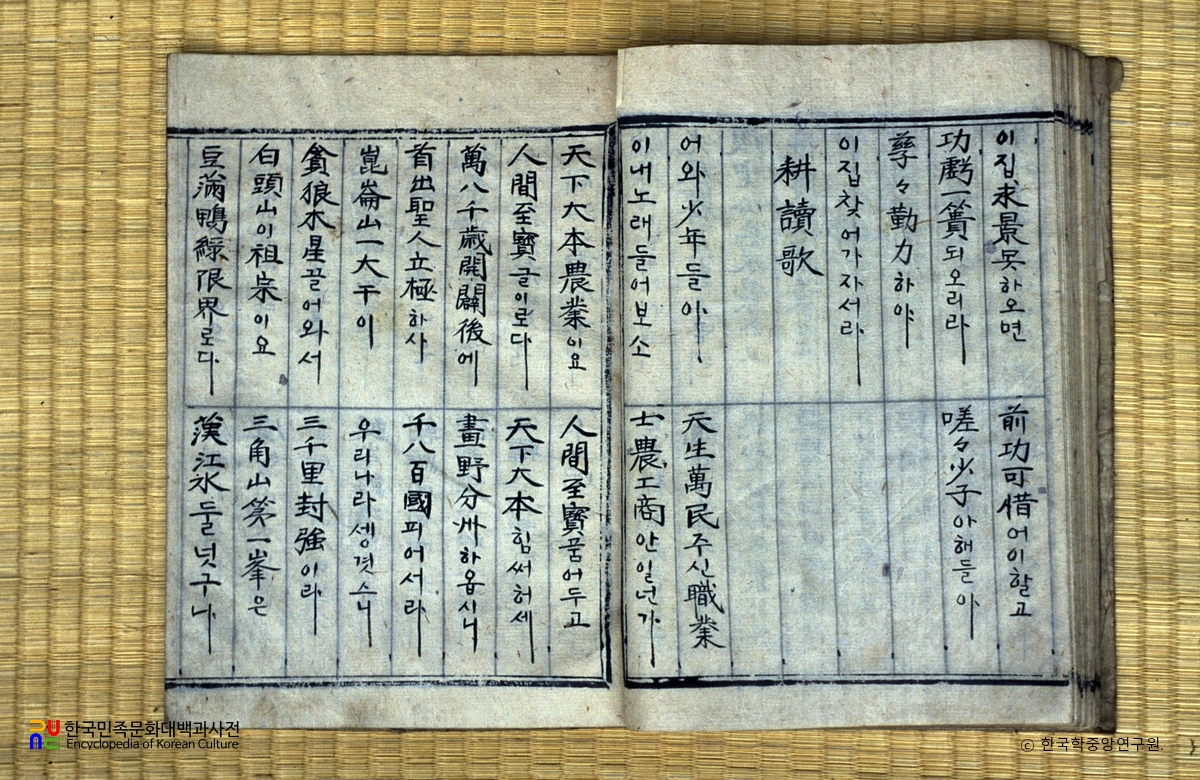 이집求景못하오면 前功可惜어이할고
功虧一簣되오리라 嗟々少子아해들아
孶々勤力하야
이집찾어가자서라
耕讀歌
어와少年들아 天生萬民주신職業
이내노래들어보소 士農工商안일넌가
天下大本農業이요 人間至寶품어두고
人間至寶글이로다 天下大本힘써허세
萬八千歲開闢後에 畫野分州하옵시니
首出聖人立極하사 千八百國피어서라
崑崙山一大干이 우리나라셍겻스니
貪狼木星끌어와서 三千里封強이라
白頭山이祖宗이요 三角山第一峯은
豆滿鴨綠限界로다 漢江水둘넛구나
한국민족문화대백과사전
Encyclopedia of Korean Culture
ⓒ 한국학중앙연구원.